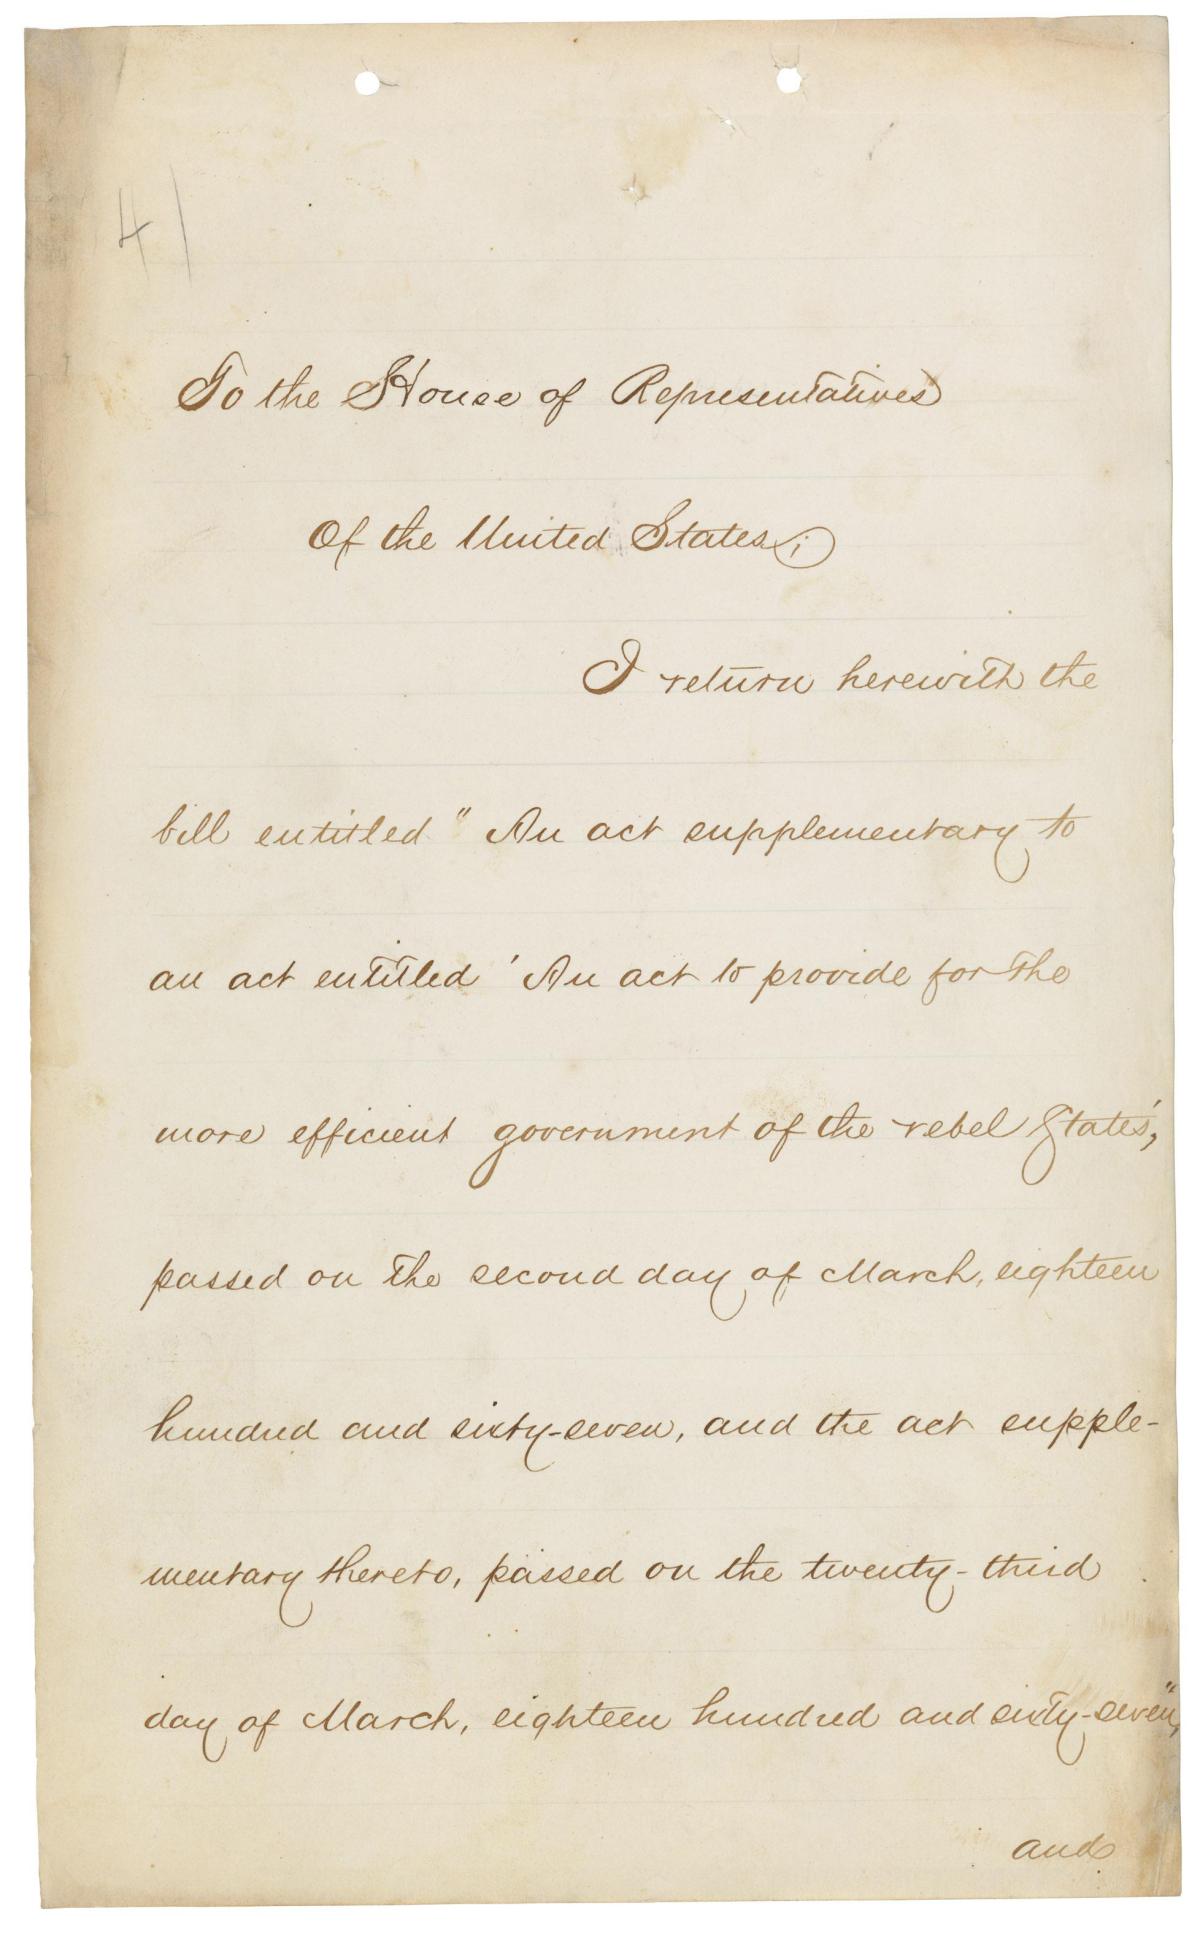 41
To the House of Representatives
Of the United States;
I return herewith the
bill entitled "An act supplementary to
an act entitled 'An act to provide for the
more efficient government of the rebel States',
passed on the second day of March, eighteen
hundred and sixty-seven, and the act supple-
mentary thereto, passed on the twenty-third
day of March, eighteen hundred and sixty-seven",
and